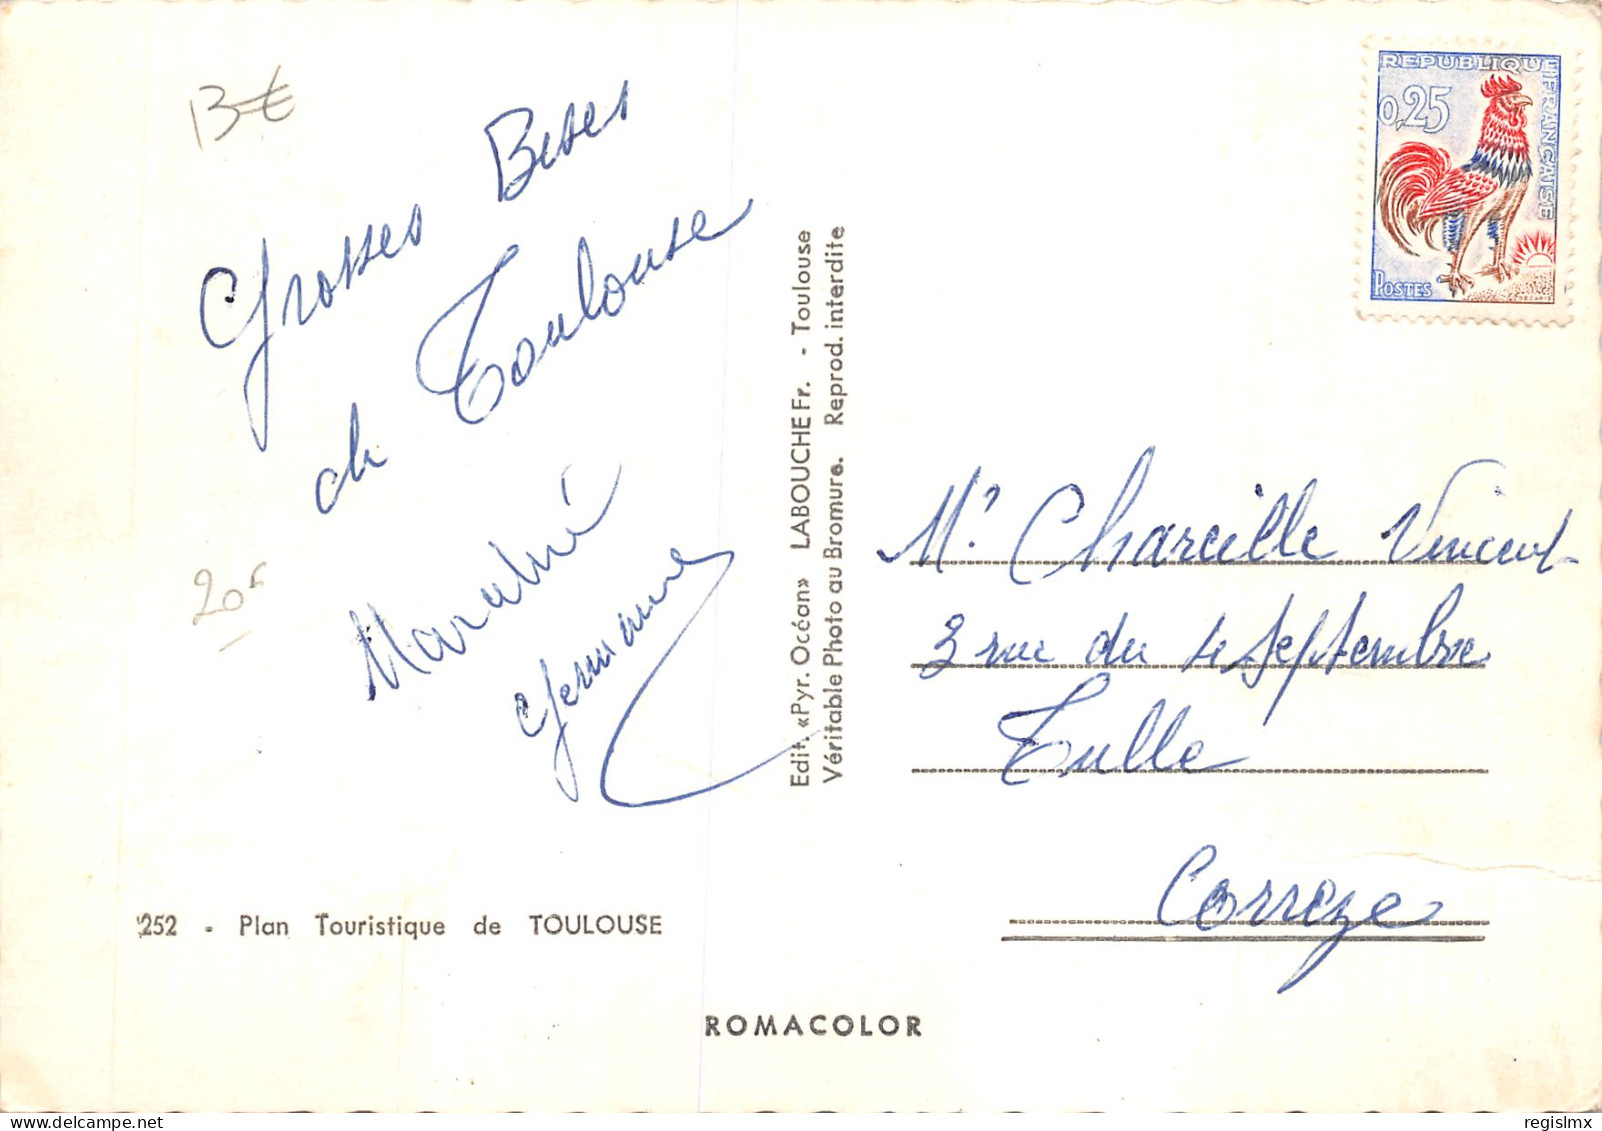 13€
Grosses Bises
de Toulouse
Germaine
20F
252 - Plan Touristique de TOULOUSE
Edit. «Pyr. Océan» LABOUCHE Fr. - Toulouse
Véritable Photo au Bromure. Reprod. interdite
ROMACOLOR
REPUBLIQUE FRANÇAISE
0,25
POSTES
Mr Chareille Vincent
3 rue du 4 Septembre
Tulle
Correze
regislmx